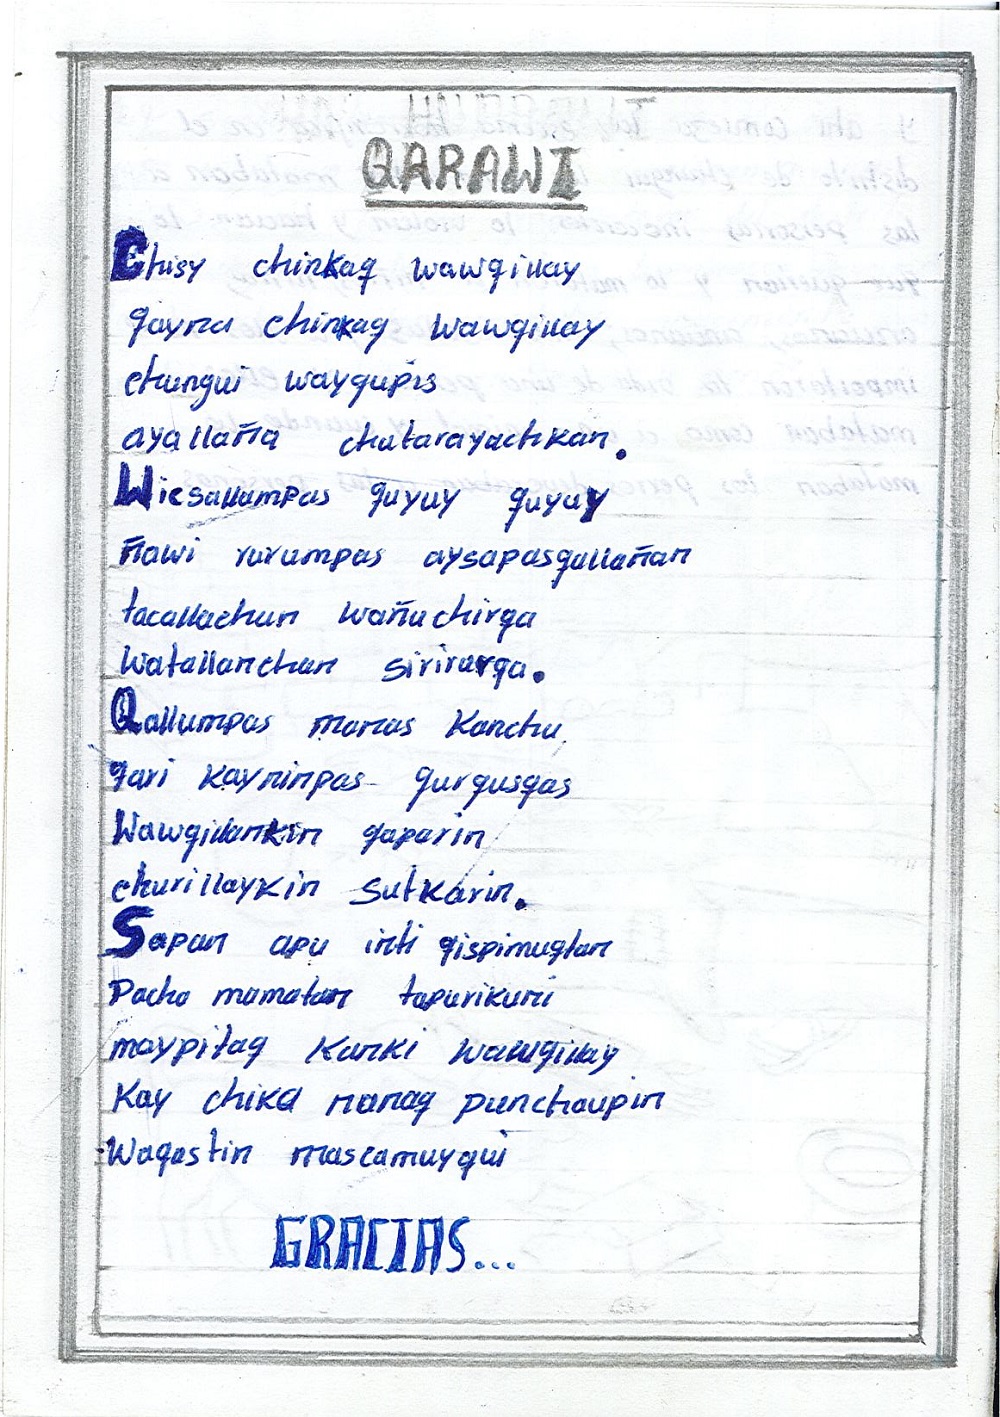 QARAWI
Chisy chinkaq wawqillay
qayna chinkaq wawqillay
chungui wayqupis
ayallaña chutarayachkan.
Wicsallampas quyuy quyuy
ñawi rurumpas aysapasqallañan
tacallachun wañuchirqa
watallanchan sirirarqa.
Qallumpas manas kanchu
qari kayninpas qurqusqas
Wawqillankin qaparin
churillaykin sutkarin.
Sapan apu inti qispimuqtan
Pacha mamatan tapurikuni
maypitaq kanki wawqillay
Kay chika nanaq punchaupin
Waqastin mascamuyqui
GRACIAS...